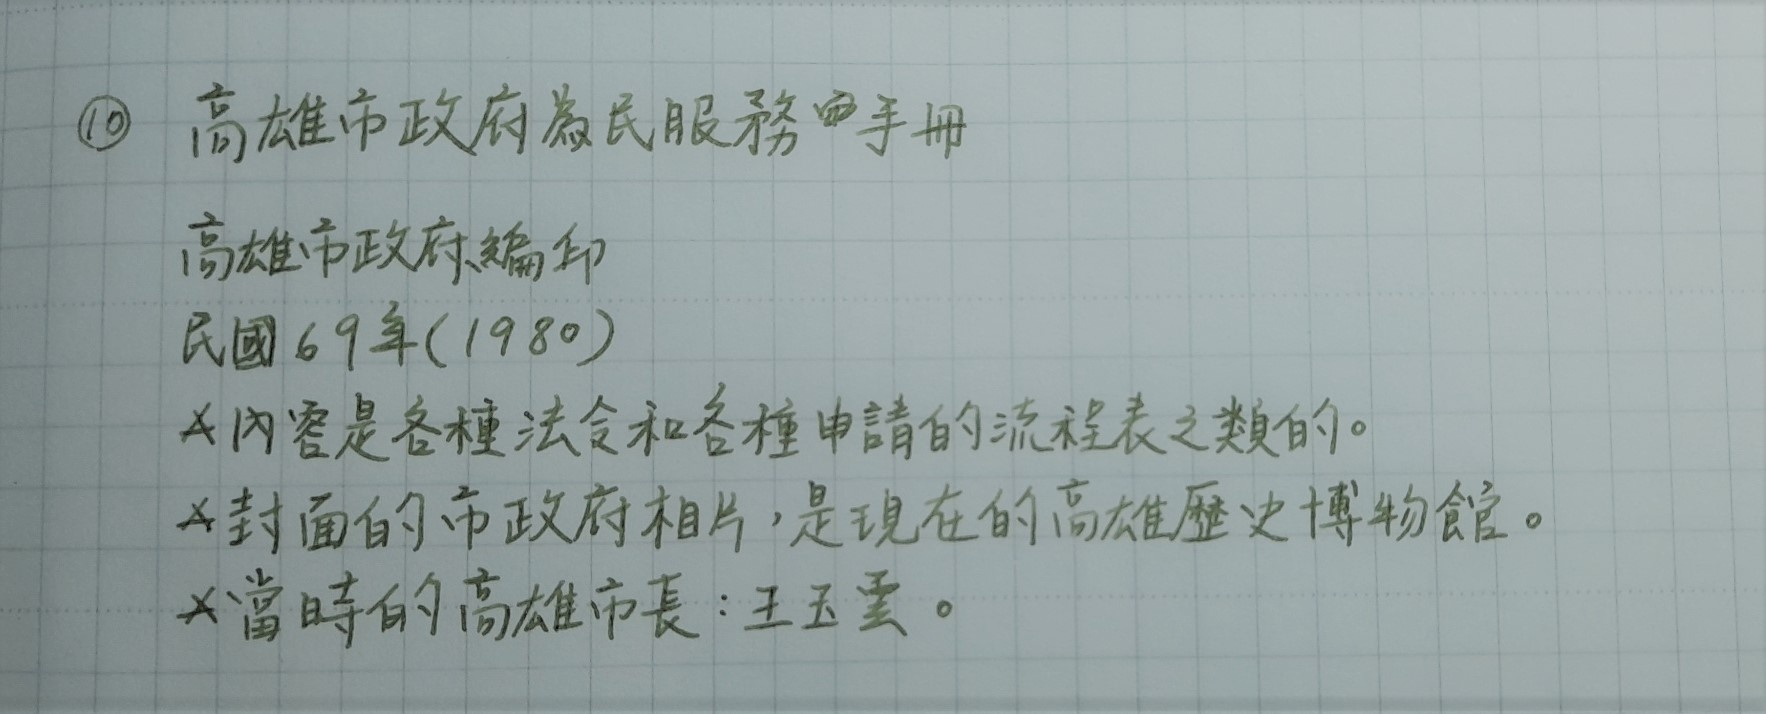 ⑩ 高雄市政府為民服務手冊
高雄市政府編印
民國69年(1980)
×內容是各種法令和各種申請的流程表之類的。
×封面的市政府相片，是現在的高雄歷史博物館。
×當時的高雄市長：王玉雲。